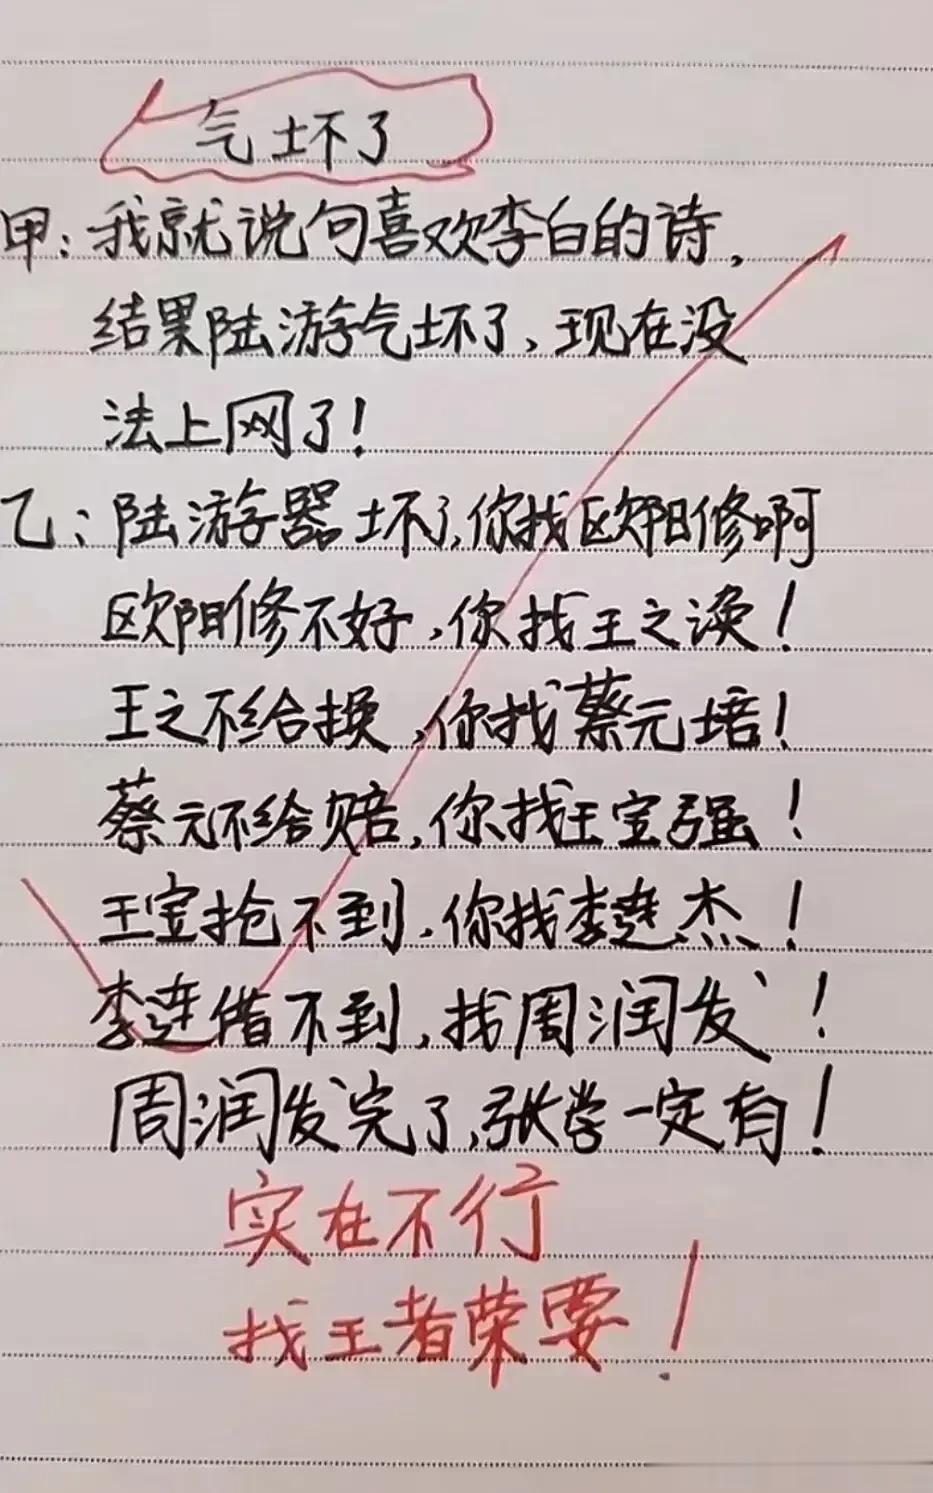 气坏了
甲:我就说句喜欢李白的诗,
结果陆游气坏了,现在没
法上网了!
乙:陆游器坏了,你找欧阳修啊
欧阳修不好,你找王之涣!
王之不给换,你找蔡元培!
蔡元不给赔,你找王宝强!
王宝抢不到,你找李连杰!
李连借不到,找周润发!
周润发完了,张学一定有!
实在不行
找王者荣要!